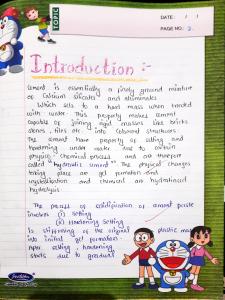 TOPIC
DATE: / /
PAGE NO.: 2.
Introduction :-
Cement is essentially a finely ground mixture
of Calcium silicates and aluminates
Which sets to a hard mass when treated
with water. This property makes cement
capable of joining rigid masses like bricks
stones, tiles etc. into coherent structures.
The cement have property of setting and
hardening under water due to certain
physico-chemical process and are therefore
called "hydraulic cement" The physical changes
taking place are gel formation and
crystallization and chemical are hydration &
hydrolysis.
The process of solidification of cement paste
involves (i) Setting
(ii) Hardening Setting
is stiffening of the original plastic mass
into initial gel formation.
After setting, hardening
starts due to gradual